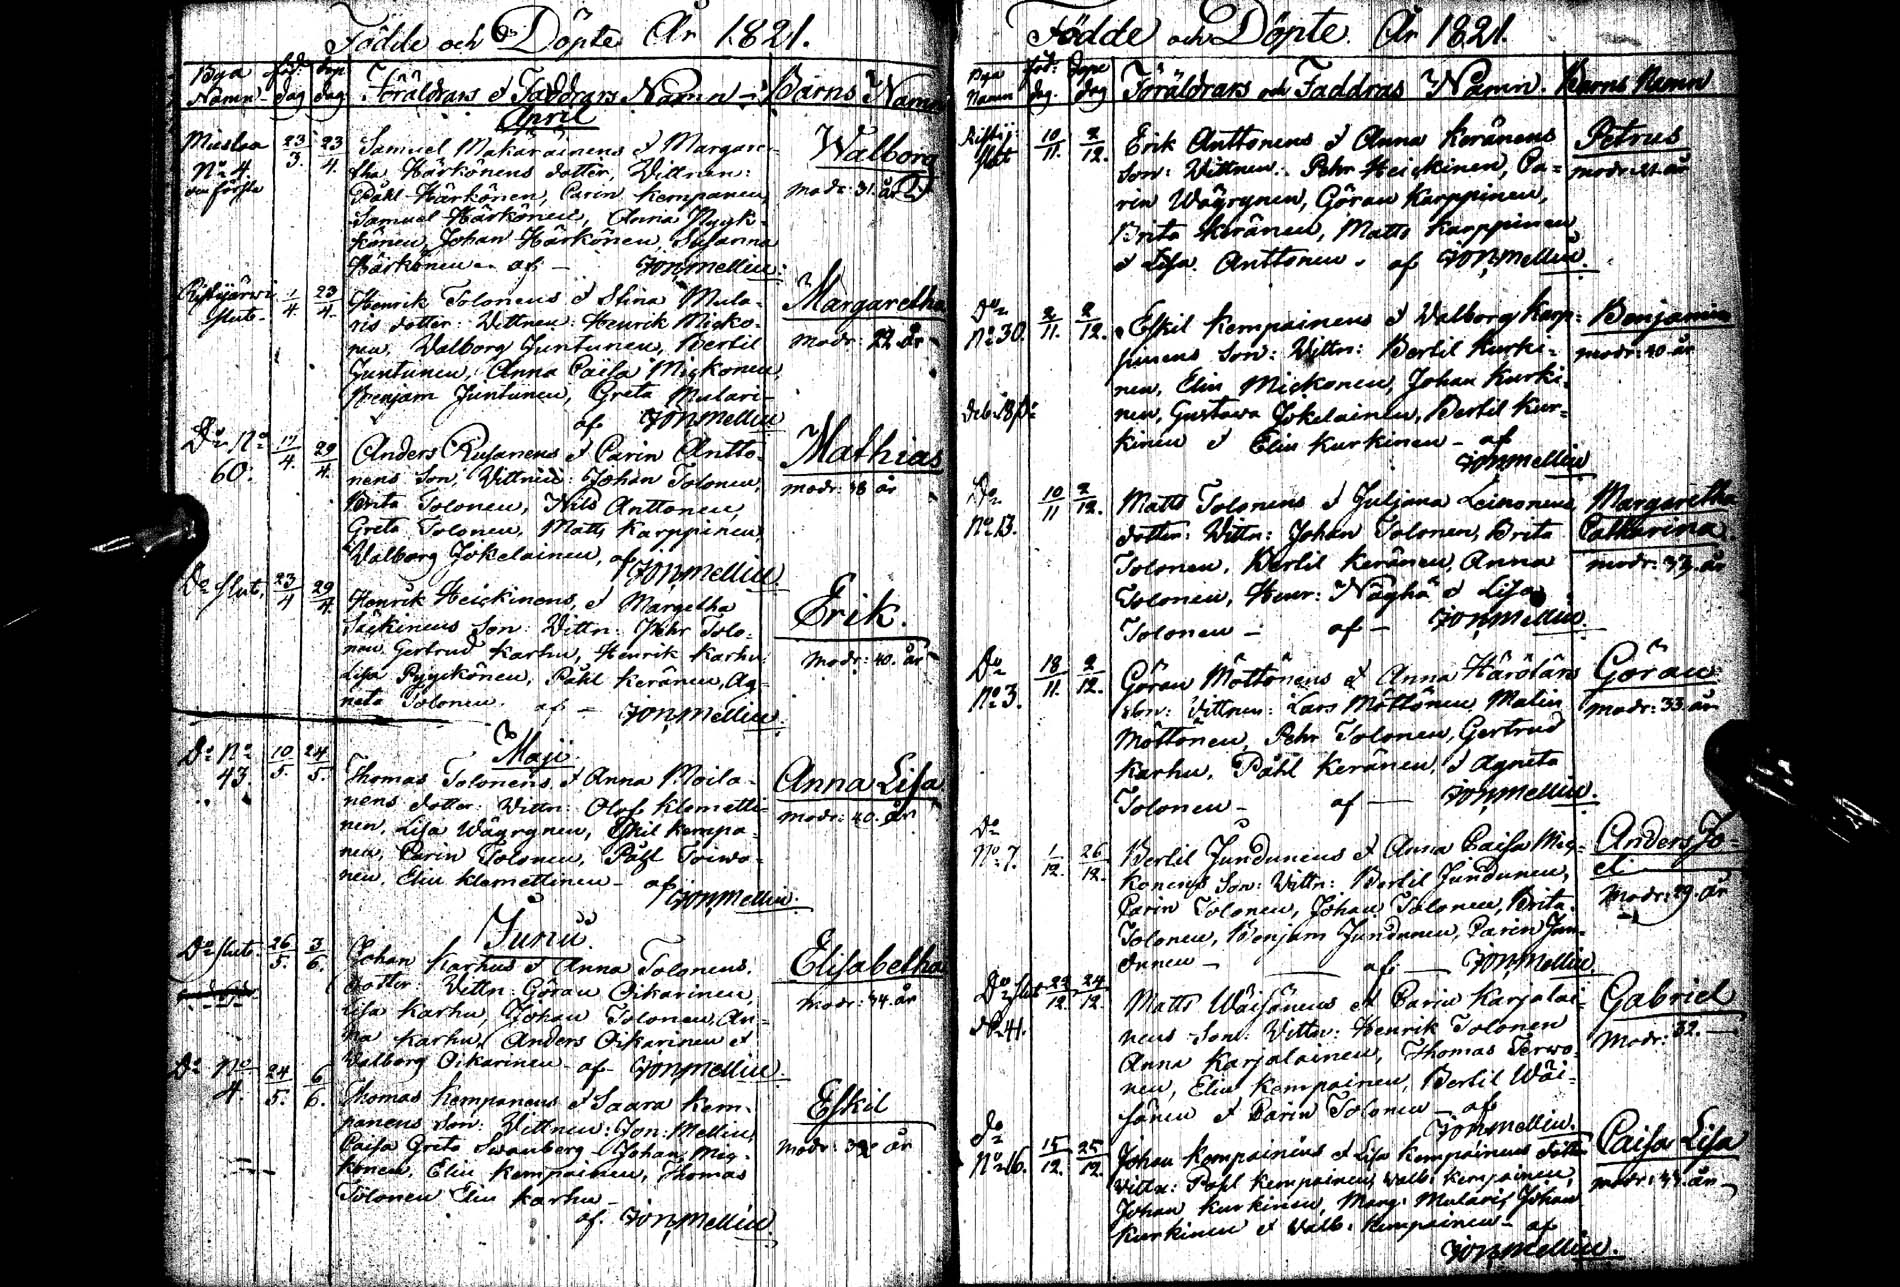 Födde och Döpte År 1821.
Bya Namn
föd: dag
döp dag
Föräldrars & Faddrars Namn
Barns Namn
April
Mieslaa
No 4.
23/3. 23/4.
Samuel Makarainens & Margare-
tha Härkönens dotter, Wittnen:
Påhl Härkönen, Carin Kempanen,
Samuel Härkönen, Anna Mygk-
könen, Johan Härkönen, Susanna
Härkönen - af - Jon Mellin.
Walborg
modr: 31. år
Ristijärwi
slut.
1/4. 23/4.
Henrik Tolonens & Stina Mula-
ris dotter: Wittnen: Henrik Micko-
nen, Walborg Juntunen, Bertil
Juntunen, Anna Caisa Mickonen,
Benjam Juntunen, Greta Mulari -
af Jon Mellin
Margaretha
modr: 22 år
Do No
60.
17/4. 29/4.
Anders Rusanens & Carin Antto-
nens Son, Wittnen: Johan Tolonen,
Brita Tolonen, Nils Anttonen,
Greta Tolonen, Matts Karppinen,
Walborg Jokelainen, af
Jon Mellin
Mathias
modr: 38 år
Do slut.
23/4 29/4.
Henrik Heickinens & Margetha
Säckinens Son: Wittn: Pehr Tolo-
nen, Gertrud Karhu, Henrik Karhu,
Lisa Pyykönen, Påhl Keränen, Ag-
neta Tolonen. af - Jon Mellin
Erik.
modr: 40. år
Maji.
Do No
43.
10/5. 24/5.
Thomas Tolonens & Anna Moila-
nens dotter: Wittn: Olof Klemetti-
nen, Lisa Wäyrynen, Eskil Kempa-
nen, Carin Tolonen, Påhl Toiwo-
nen, Elin Klemettinen - af
Jon Mellin.
Anna Lisa
modr: 40. år
Junii.
Do slut.
26/5. 3/6.
Johan Karhus & Anna Tolonens
dotter Wittn: Göran Oikarinen,
Lisa Karhu, Johan Tolonen, An-
na Karhu, Anders Oikarinen &
Walborg Oikarinen - af - Jon Mellin
Elisabetha
modr: 34. år
Do No
4.
24/5. 6/6.
Thomas Kempanens & Saara Kem-
panens Son: Wittnen: Jon: Mellin,
Caisa Greta Swanberg, Johan Mig-
konen, Elin Kempainen, Thomas
Tolonen Elin Karhu -
af. Jon Mellin
Eskil
modr: år
Födde och Döpte År 1821.
Bya Namn
föd: dag.
döpe dag
Föräldrars och Faddras Namn.
Barns Namn
Ristij
slut
10/11. 2/12.
Erik Anttonens & Anna Keränens
Son: Wittnen: Pehr Heickinen, Ca-
rin Wäyrynen, Göran Karppinen,
Brita Keränen, Matts Karppinen
& Lisa Anttonen. af Jon Mellin.
Petrus
modr: 21. år
Do
No 30.
2/11. 2/12.
Eskil Kempainens & Walborg Karp-
pinens Son: Wittn: Bertil Kurki-
nen, Elin Mickonen, Johan Kurki-
nen, Gustawa Jokelainen, Bertil Kur-
kinen & Elin Kurkinen - af
Jon Mellin
Benjamin
modr: 40 år
Do
No 13.
10/11 2/12.
Matts Tolonens & Juljana Leinonens
dotter: Wittn: Johan Tolonen, Brita
Tolonen, Bertil Keränen, Anna
Tolonen, Henr: Näghä & Lisa
Tolonen - af - Jon Mellin
Margaretha
Catharina.
modr: 33. år
Do
No 3.
18/11. 2/12.
Göran Möttönens & Anna Häröläs
Son: Wittnen: Lars Möttönen, Malin
Möttönen, Pehr Tolonen, Gertrud
Karhu, Påhl Keränen, & Agneta
Tolonen - af - Jon Mellin.
Göran
modr: 33. år
Do
No 7.
1/12. 26/12.
Bertil Jundunens & Anna Caisa Mig-
konens Son: Wittn: Bertil Jundunen,
Carin Tolonen, Johan Tolonen, Brita
Tolonen, Benjam Jundunen, Carin Jun-
dunen - af - Jon Mellin.
Anders Jo-
el
modr: 29. år
Do slut
No 41.
22/12. 24/12
Matts Wäisänens & Carin Karjalai-
nens Son: Wittn: Henrik Tolonen
Anna Karjalainen, Thomas Terwo-
nen, Elin Kempainen, Bertil Wäi-
sänen & Carin Tolonen - af
Jon Mellin.
Gabriel
Modr: 32. -
Do
No 16.
15/12. 25/12
Johan Kempainens & Lisa Kempainens dotter
Wittn: Påhl Kempainen, Walb: Kempainen,
Johan Kurkinen, Marg: Mulari, Johan
Kurkinen & Walb: Kempainen - af
Jon Mellin.
Caisa Lisa
modr: år